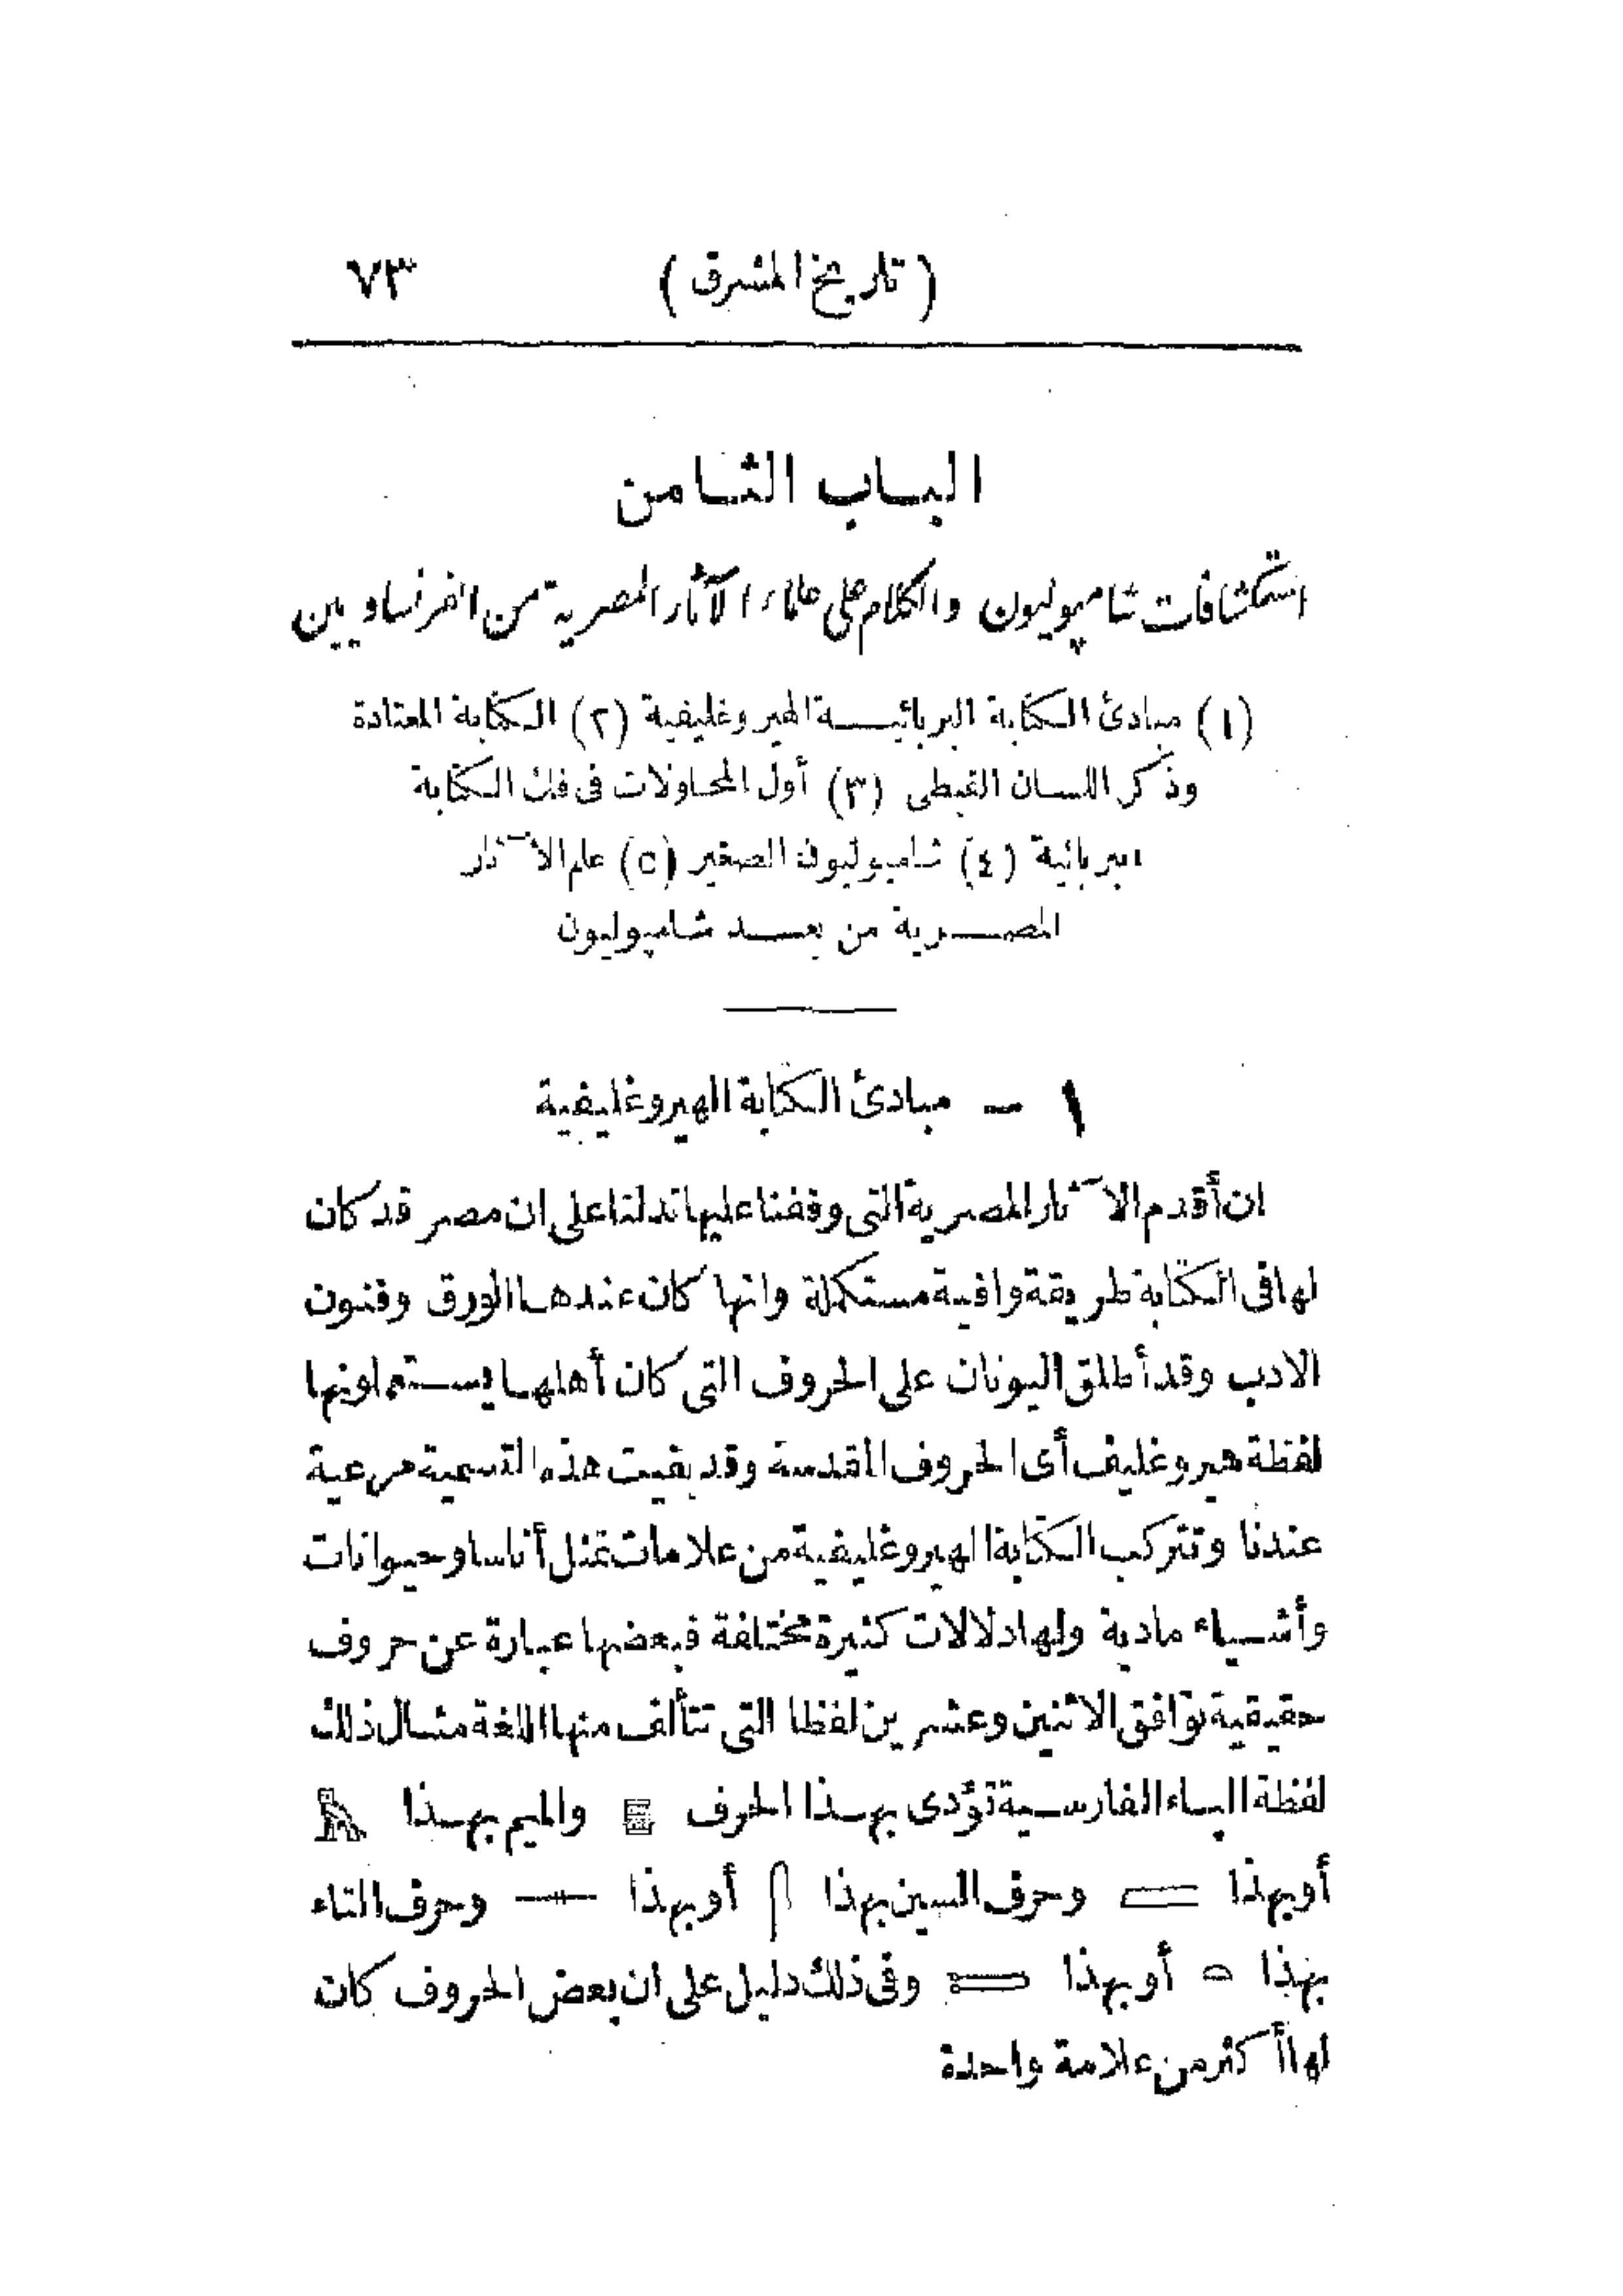 (تاريخ المشرق) ٧٣
الباب الثامن
استكشافات شامپوليون والكلام على علماء الآثار المصرية من الفرنساويين
(١) مبادئ الكتابة البربائية الهيروغليفية (٢) الكتابة المعتادة
وذكر اللسان القبطى (٣) أول المحاولات فى فك الكتابة
البربائية (٤) شامپوليون الصغير (٥) علم الآثار
المصرية من بعد شامپوليون
١ - مبادئ الكتابة الهيروغليفية
ان أقدم الآثار المصرية التى وقفنا عليها تدلنا على ان مصر قد كان
لها فى الكتابة طريقة وافية مستكملة وانها كان عندها الورق وفنون
الادب وقد أطلق اليونان على الحروف التى كان أهلها يستعملونها
لفظة هيروغليف أى الحروف المقدسة وقد بقيت هذه التسمية مرعية
عندنا وتتركب الكتابة الهيروغليفية من علامات تمثل أناسا وحيوانات
وأشياء مادية ولها دلالات كثيرة مختلفة فبعضها عبارة عن حروف
حقيقية توافق الاثنين وعشرين لفظا التى تتألف منها اللغة مثال ذلك
لفظة الپاء الفارسية تؤدى بهذا الحرف والميم بهذا
أو بهذا وحرف السين بهذا أو بهذا وحرف التاء
بهذا أو بهذا وفى ذلك دليل على ان بعض الحروف كان
لها أكثر من علامة واحدة